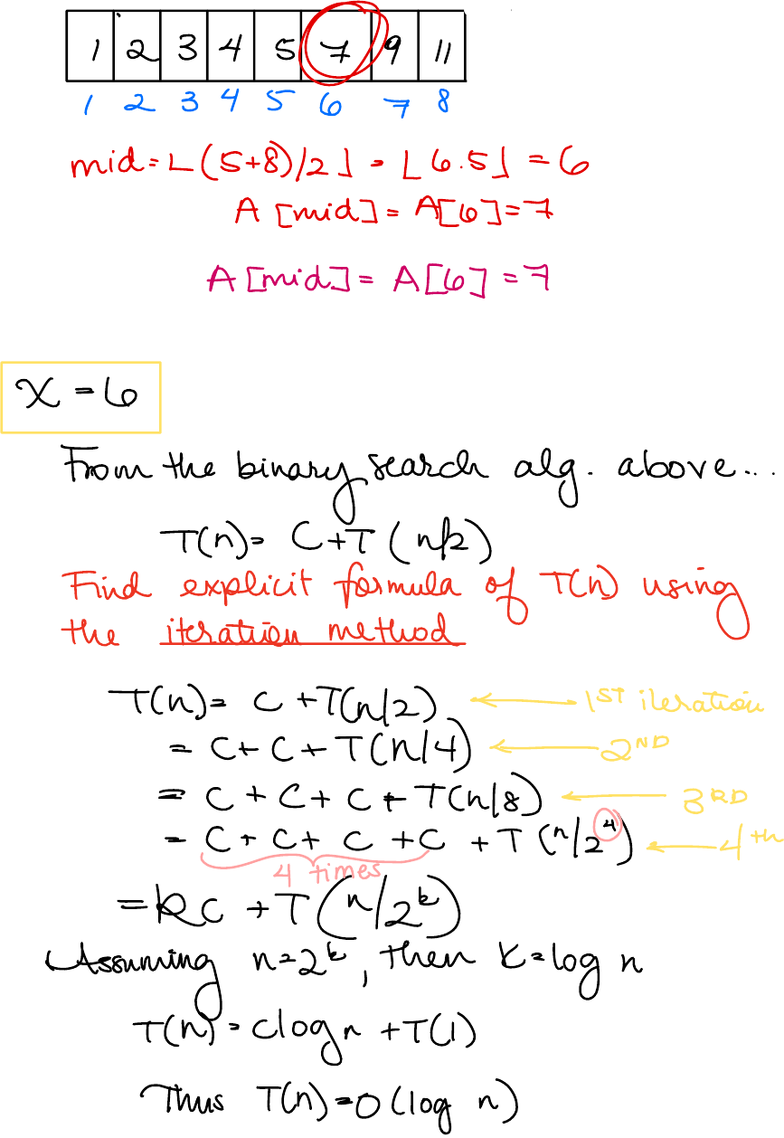 1 2 3 4 5 7 9 11
1 2 3 4 5 6 7 8
mid=⌊(5+8)/2⌋=⌊6.5⌋=6
A[mid]=A[6]=7
A[mid]=A[6]=7
x=6
From the binary search alg. above...
T(n)= C+T(n/2)
Find explicit formula of T(n) using
the iteration method
T(n)= C+T(n/2) ← 1ST iteration
= C+C+T(n/4) ← 2ND
= C+C+C+T(n/8) ← 3RD
= C+C+C+C+T(n/2^4) ← 4th
4 times
=kC+T(n/2^k)
Assuming n=2^k, then k=log n
T(n)=clogn+T(1)
Thus T(n)=O(log n)